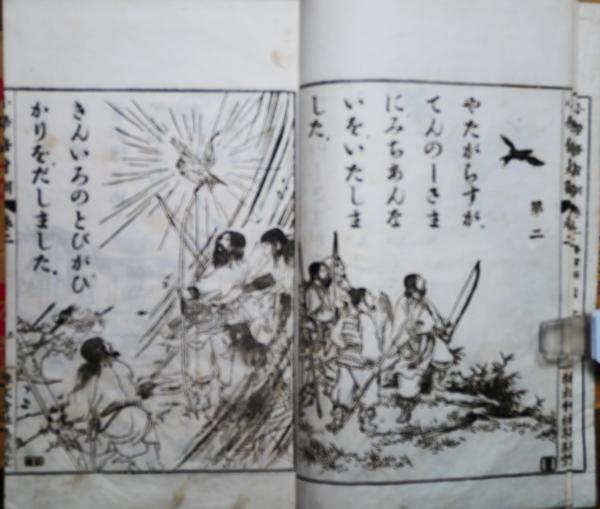 第二
やたがらすが、
てんのーさま
にみちあんな
いをいたしま
した。
きんいろのとびがひ
かりをだしました。